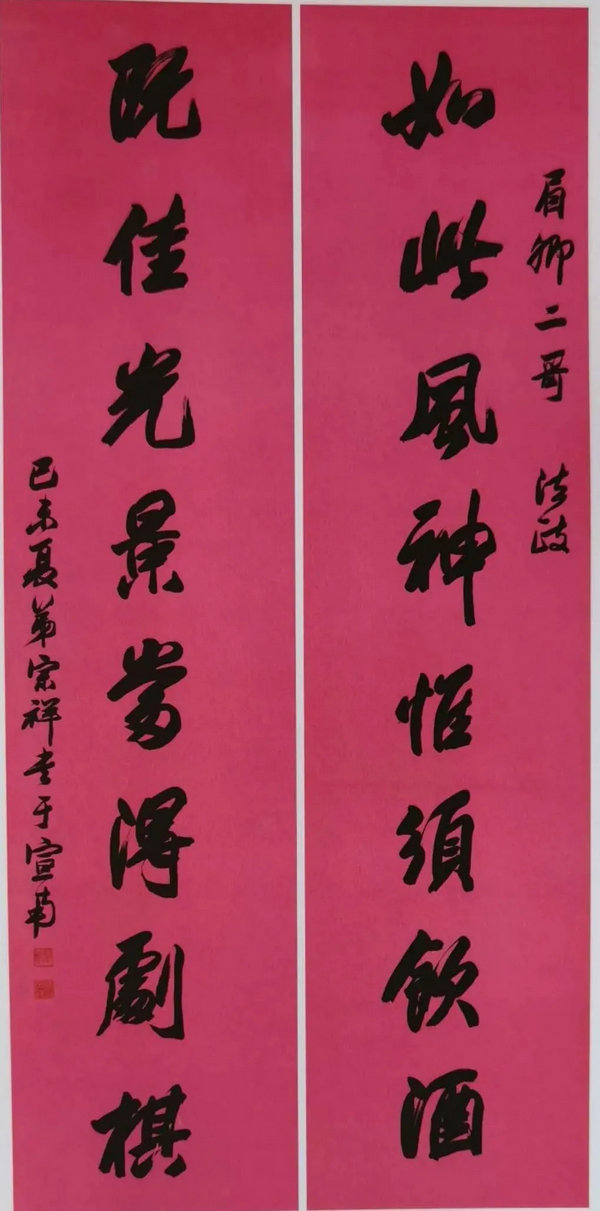 眉卿二哥 法政
如此風神惟須飲酒
既佳光景當得劇棋
己未夏弟宗祥書于宣南